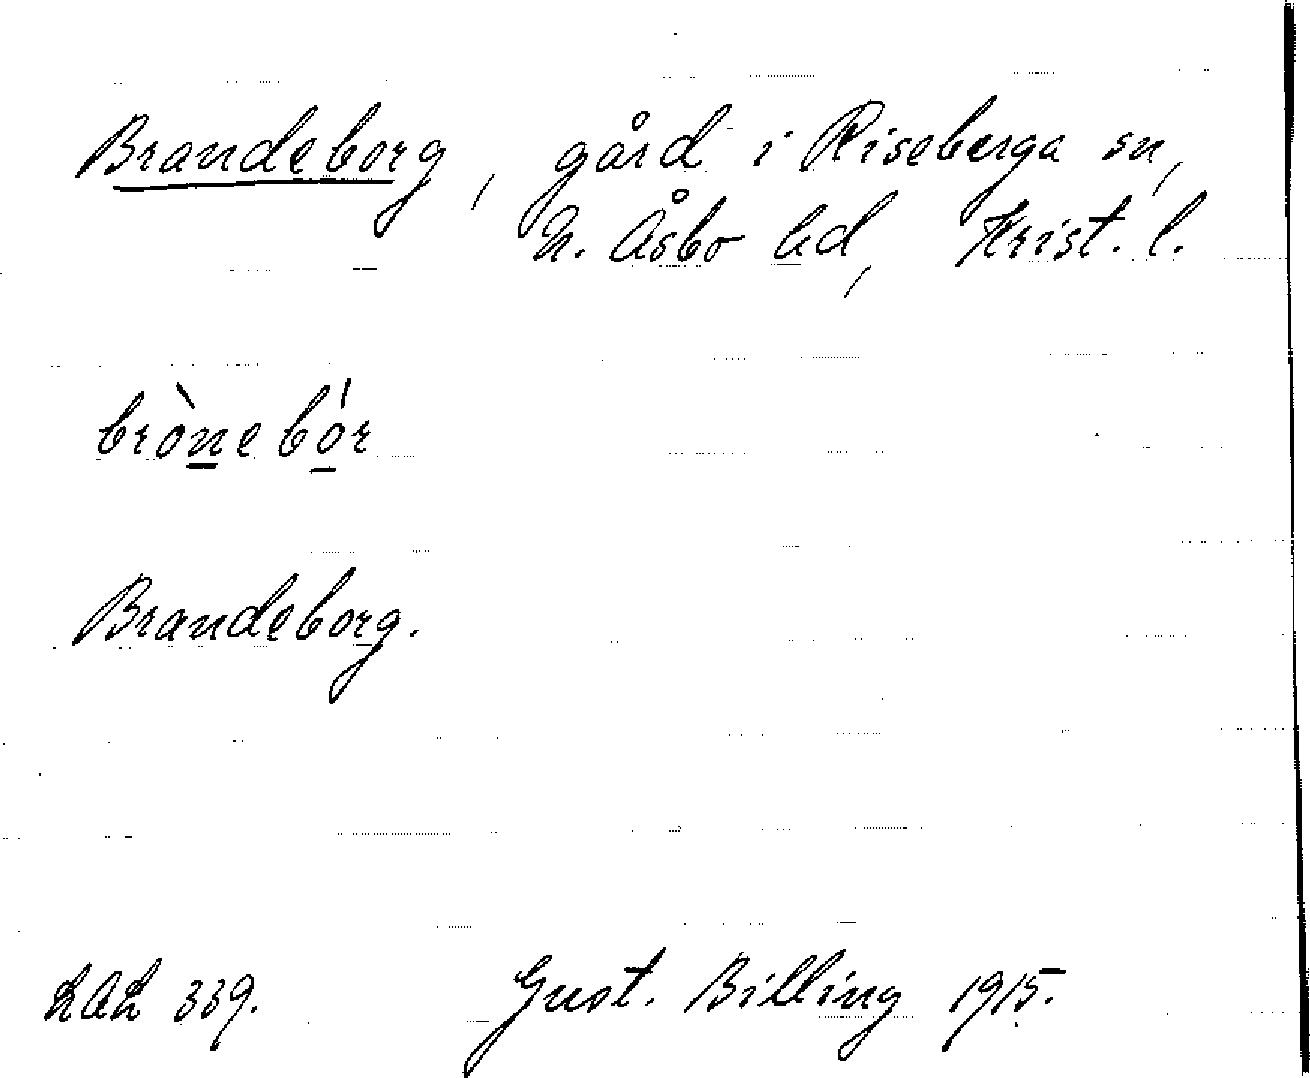 Brandeborg, gård i Riseberga sn,
N. Åsbo hd, Krist. l.
brònebór
Brandeborg.
LAL 339. Gust. Billing 1915.